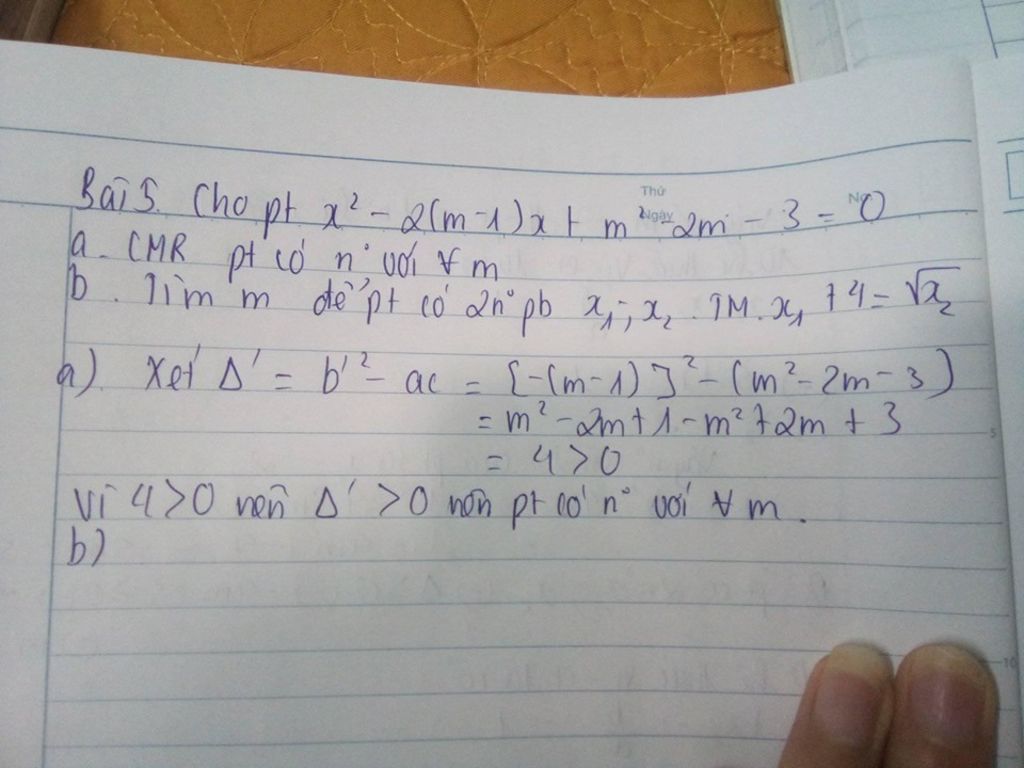 Bài 5. Cho pt x² - 2(m-1)x + m² - 2m - 3 = 0
Thứ
Ngày
No
a. CMR pt có n° với ∀ m
b. Tìm m để pt có 2n° pb x₁; x₂ . TM. x₁ + 4 = √x₂
a). Xét Δ' = b'² - ac = [-(m-1)]² - (m² - 2m - 3)
= m² - 2m + 1 - m² + 2m + 3
5
= 4 > 0
Vì 4 > 0 nên Δ' > 0 nên pt có n° với ∀ m.
b)
10